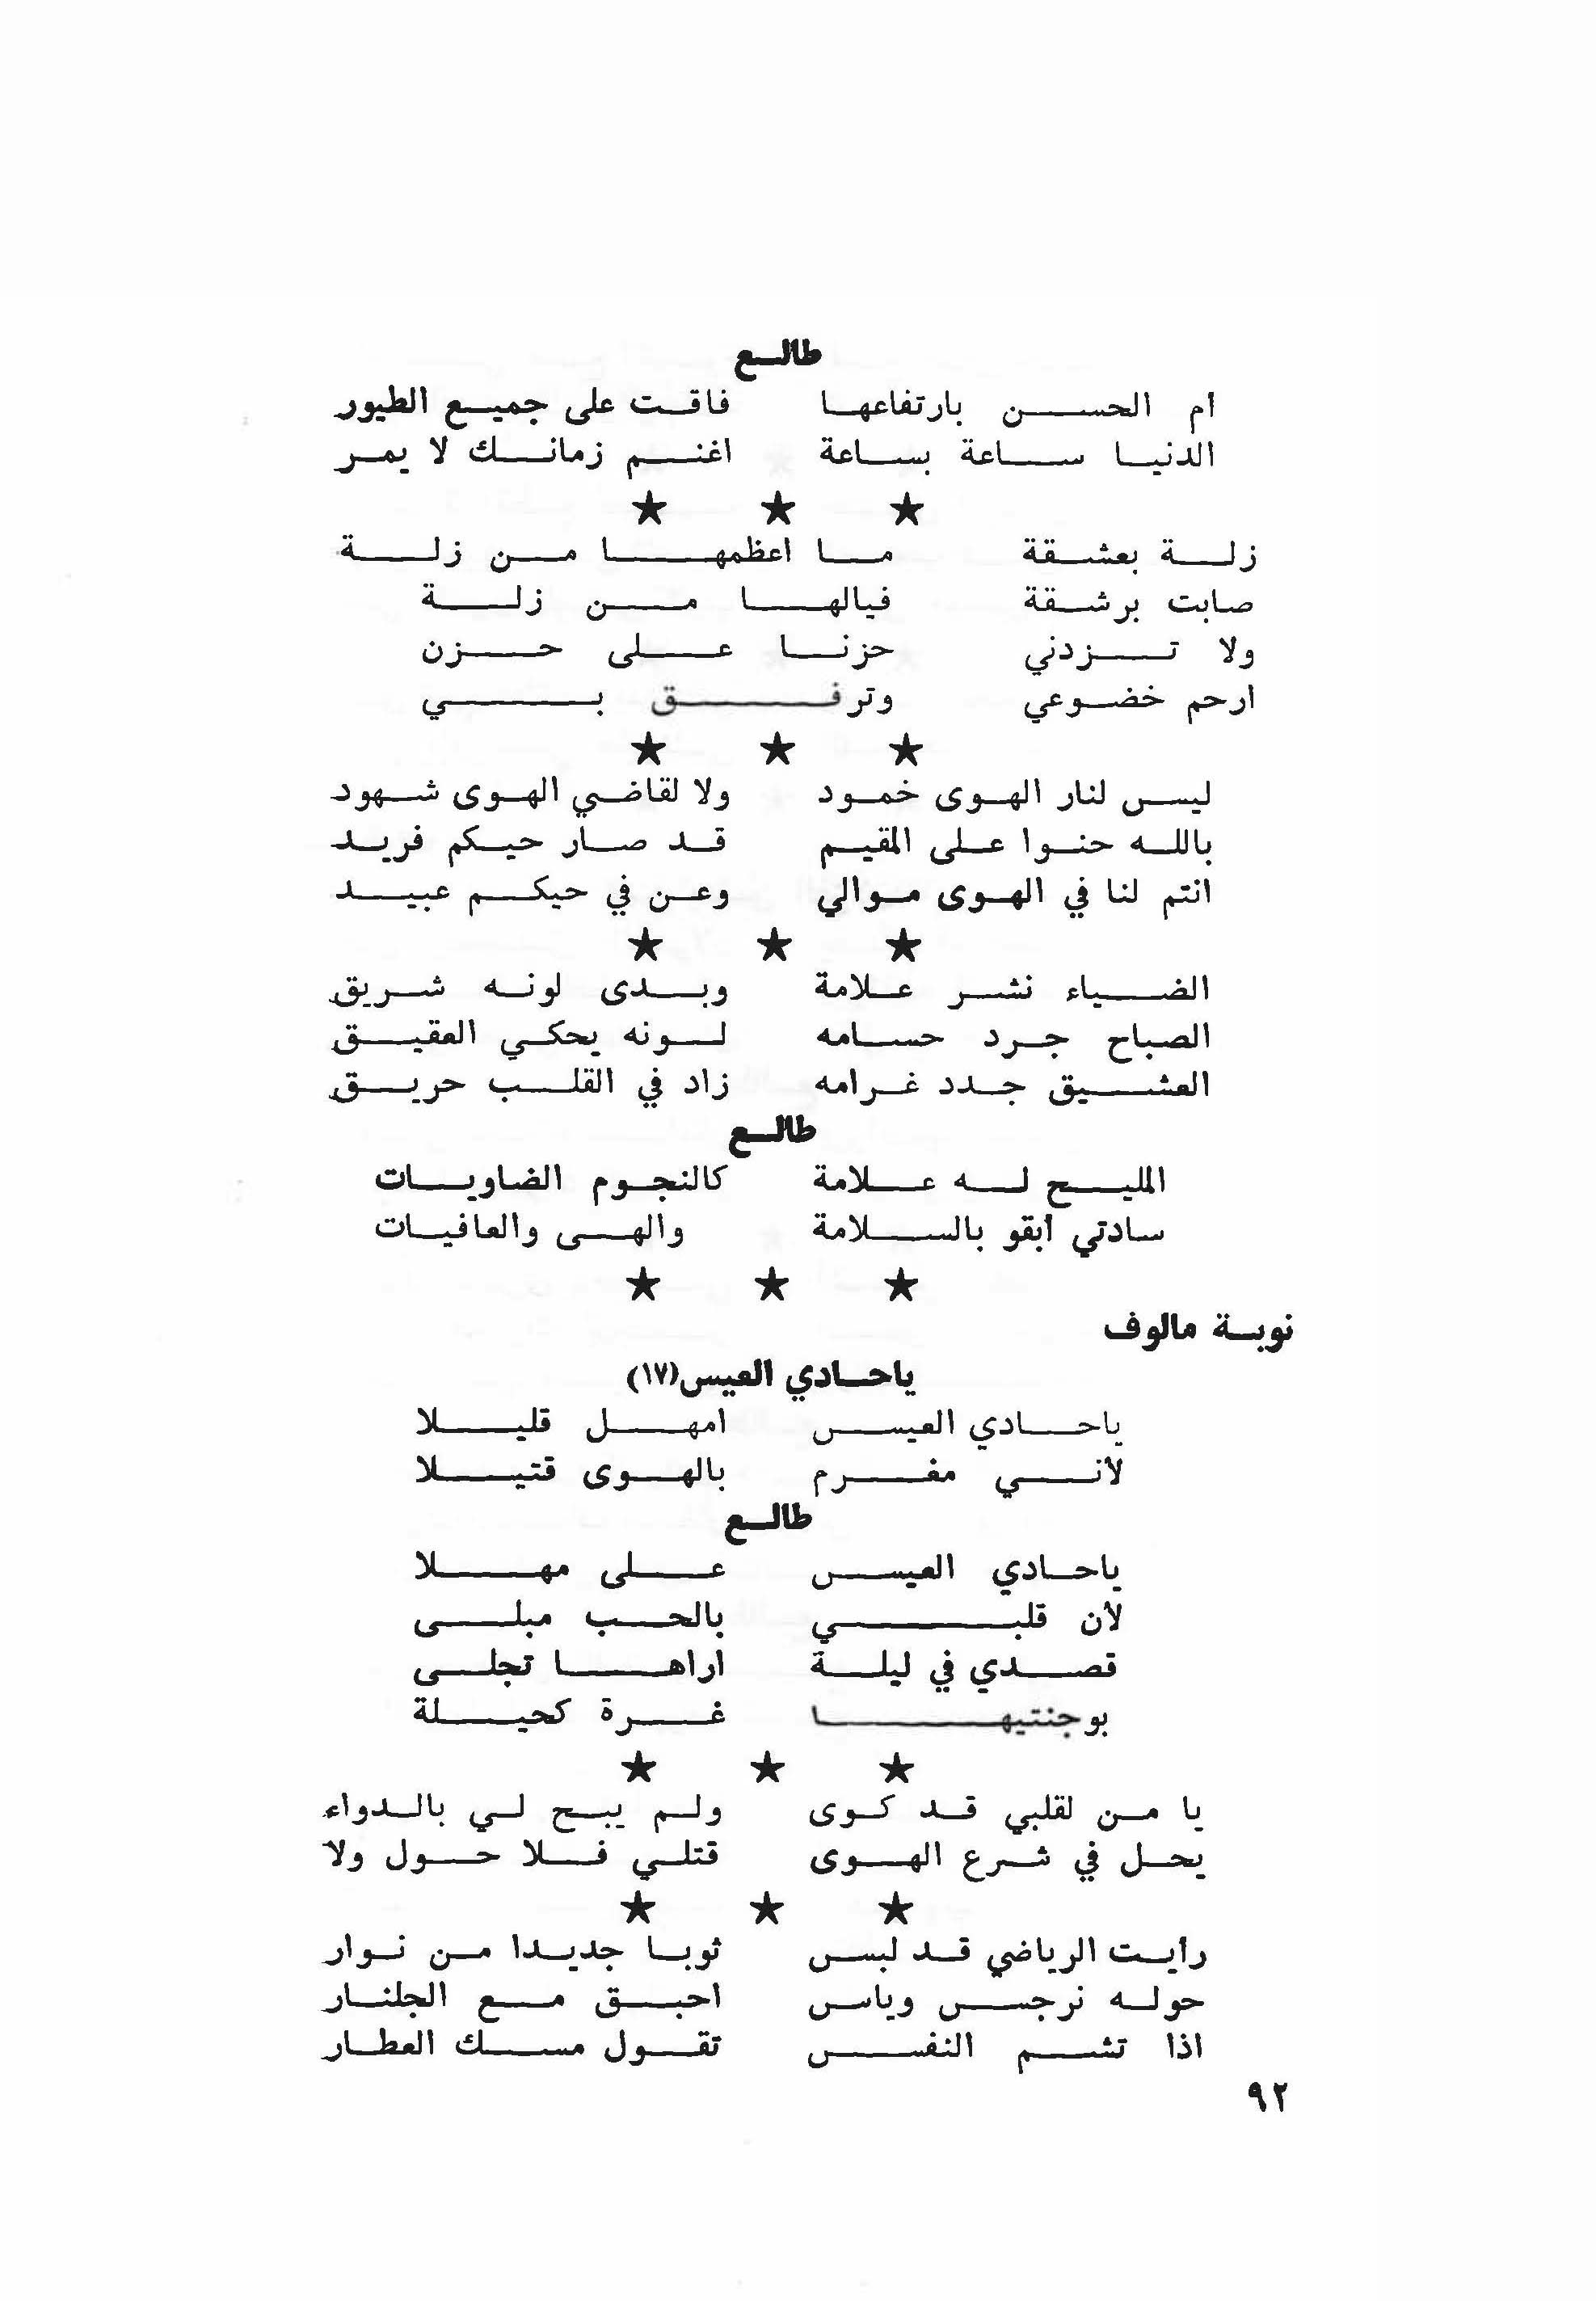 طالع
أم الحسن بارتفاعها فاقت على جميع الطيور
الدنيا ساعة بساعة اغنم زمانك لا يمر
★ ★ ★
زلة بعشقة ما اعظمها من زلة
صابت برشقة فيالها من زلة
ولا تزدني حزنا على حزن
ارحم خضوعي وترفق بي
★ ★ ★
ليس لنار الهوى خمود ولا لقاضي الهوى شهود
بالله حنوا على المقيم قد صار حيكم فريد
انتم لنا في الهوى موالي وعن في حيكم عبيد
★ ★ ★
الضياء نشر علامة وبدى لونه شريق
الصباح جرد حسامه لونه يحكي العقيق
العشيق جدد غرامه زاد في القلب حريق
طالع
المليح له علامة كالنجوم الضاويات
سادتي أبقو بالسلامة والهى والعافيات
★ ★ ★
نوبة مالوف
ياحادي العيس(١٧)
ياحادي العيس امهل قليلا
لأني مغرم بالهوى قتيلا
طالع
ياحادي العيس على مهلا
لأن قلبي بالحب مبلى
قصدي في ليلة اراها تجلى
بوجنتيها غرة كحيلة
★ ★ ★
يا من لقلبي قد كوى ولم يبح لي بالدواء
يحل في شرع الهوى قتلي فلا حول ولا
★ ★ ★
رأيت الرياضي قد لبس ثوبا جديدا من نوار
حوله نرجس وياس احبق مع الجلنار
اذا تشم النفس تقول مسك العطار
٩٢